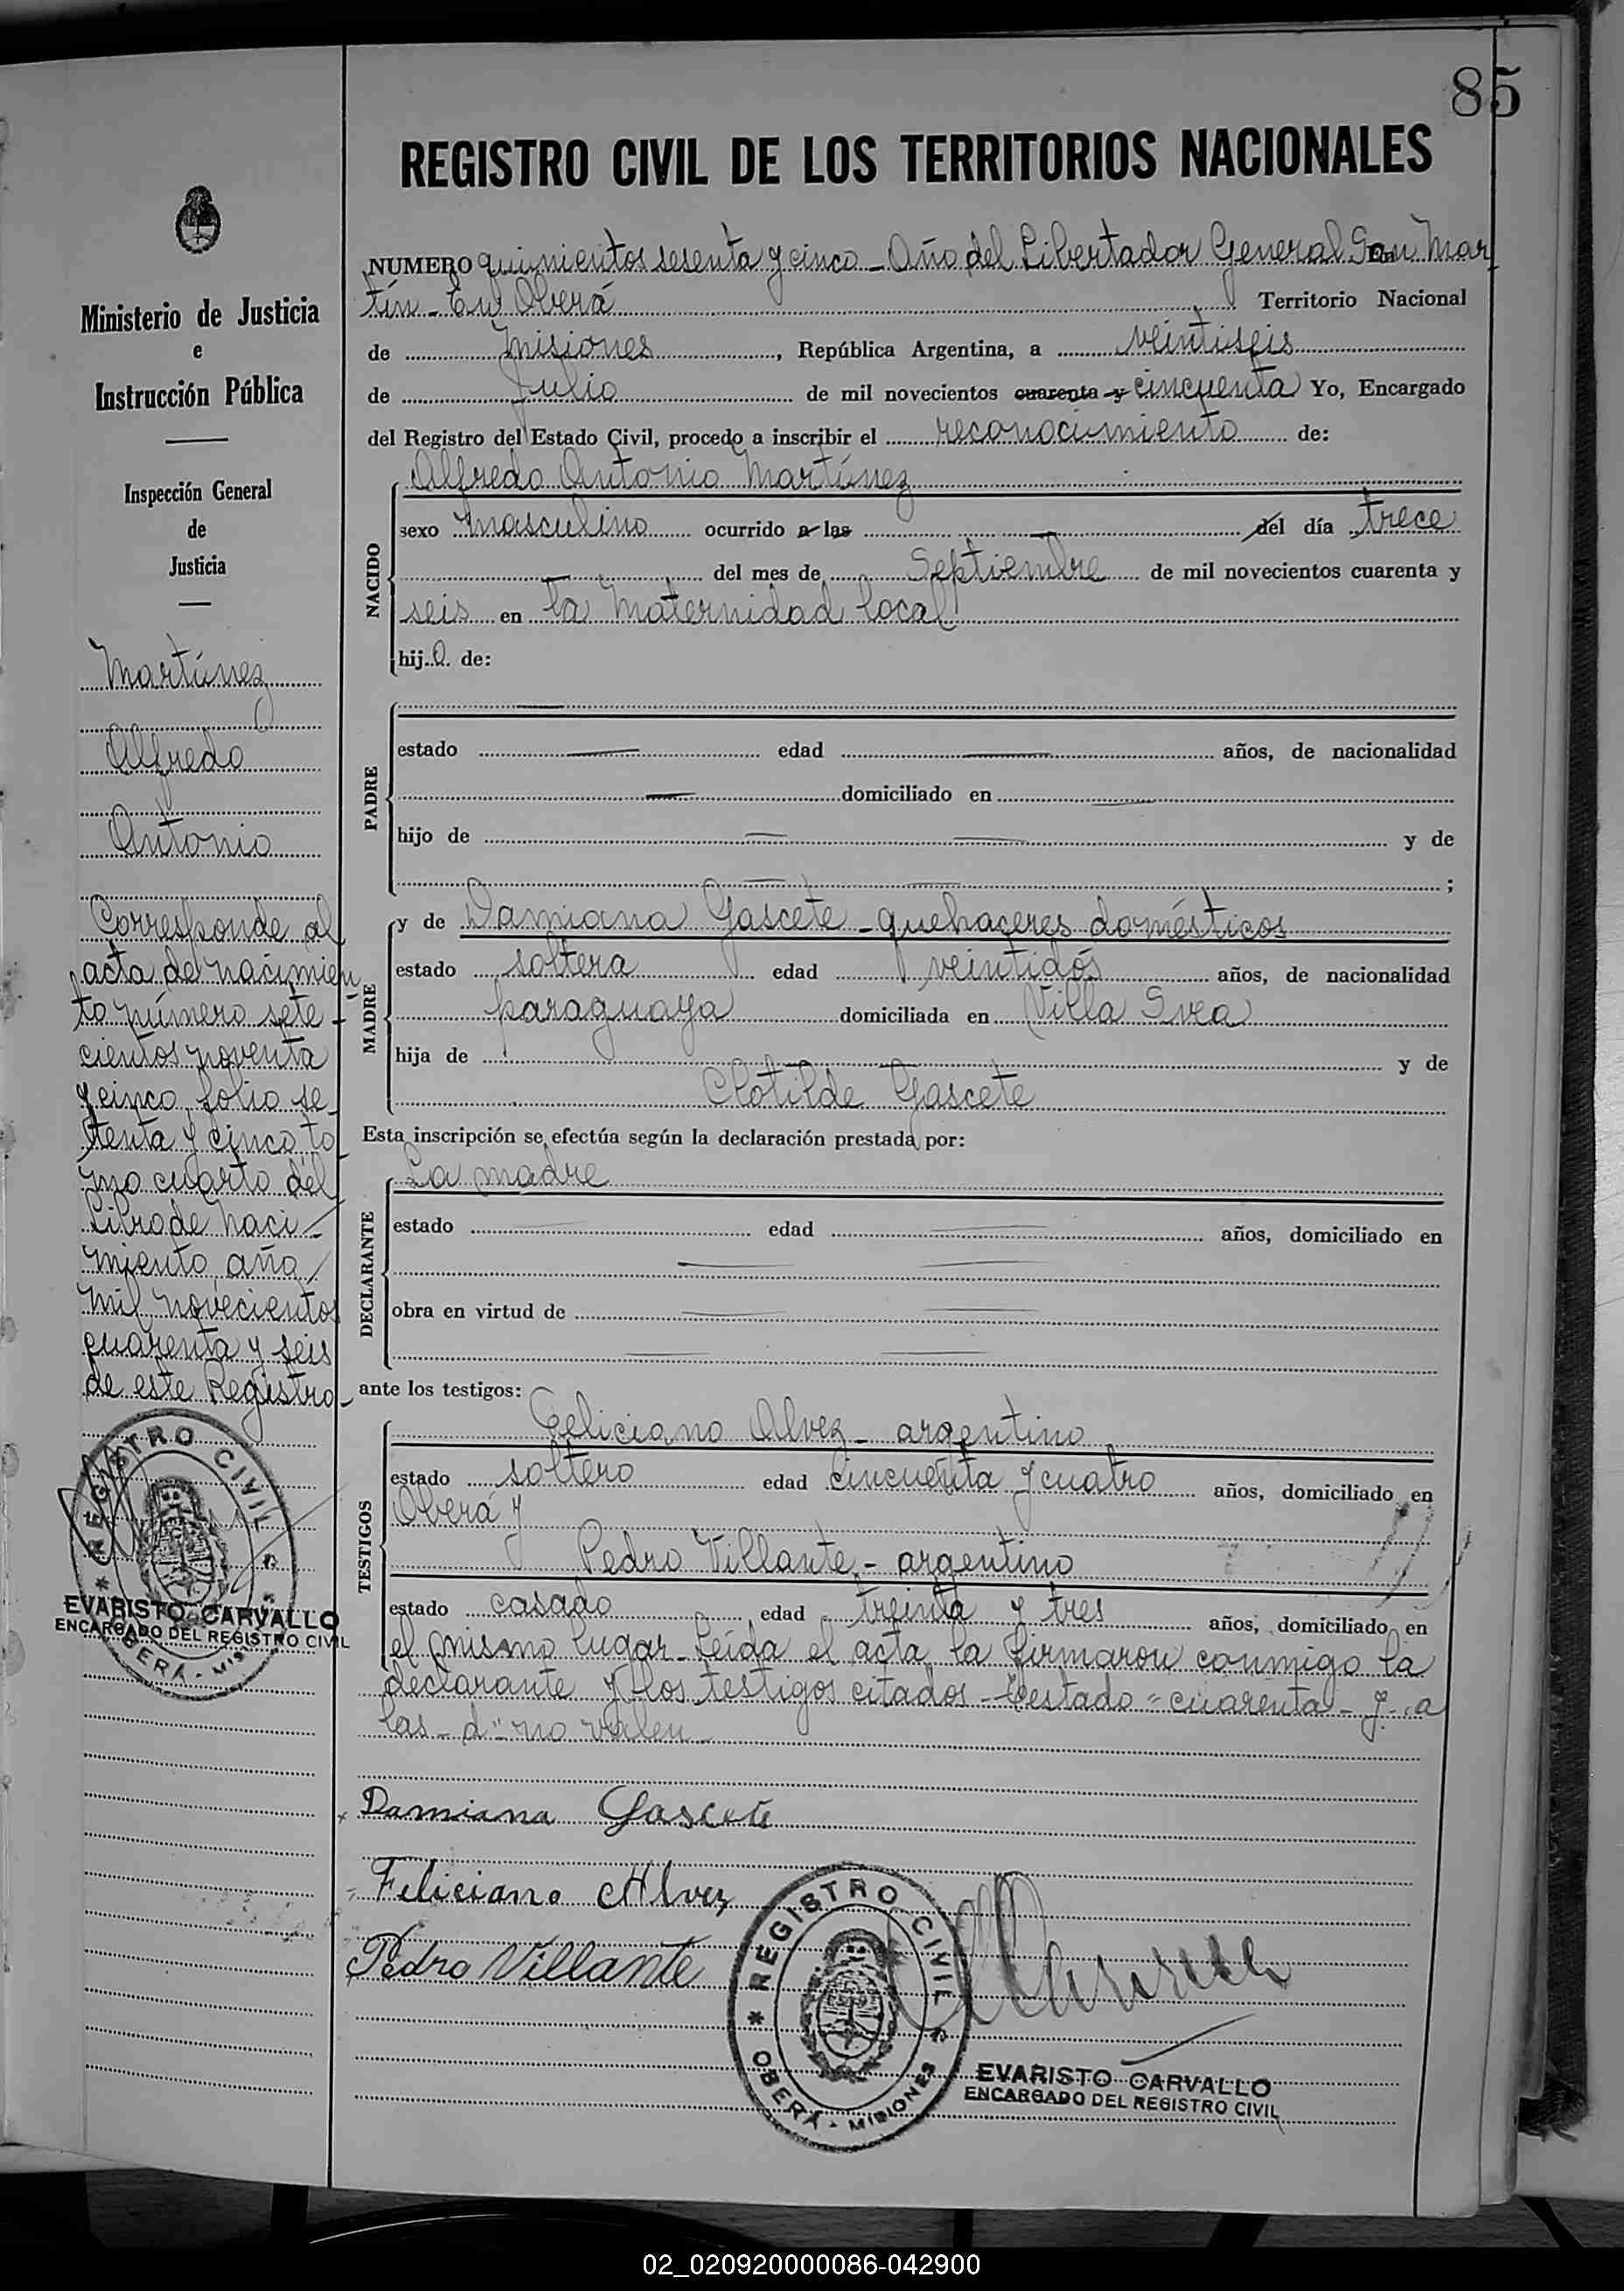 85
REGISTRO CIVIL DE LOS TERRITORIOS NACIONALES
NUMERO quinientos sesenta y cinco - Año del Libertador General San Mar
tín - En Oberá Territorio Nacional
de Misiones, República Argentina, a veintiseis
de Julio de mil novecientos cuarenta y cincuenta Yo, Encargado
del Registro del Estado Civil, procedo a inscribir el reconocimiento de:
NACIDO
Alfredo Antonio Martínez
sexo masculino ocurrido a las — del día trece
del mes de Septiembre de mil novecientos cuarenta y
seis en la Maternidad local
hijo de:
PADRE
estado — edad — años, de nacionalidad
— domiciliado en —
hijo de — y de
— ;
MADRE
y de Damiana Gascete - quehaceres domésticos
estado soltera edad veintidós años, de nacionalidad
paraguaya domiciliada en Villa Svea
hija de y de
Clotilde Gascete
Esta inscripción se efectúa según la declaración prestada por:
DECLARANTE
La madre
estado — edad — años, domiciliado en
obra en virtud de —
ante los testigos:
TESTIGOS
Feliciano Alvez - argentino
estado soltero edad cincuenta y cuatro años, domiciliado en
Oberá y
Pedro Villante - argentino
estado casado edad treinta y tres años, domiciliado en
el mismo lugar - Leída el acta la firmaron conmigo la
declarante y los testigos citados - Testado = cuarenta - y - a
las - d = no valen
Damiana Gascete
Feliciano Alvez
Pedro Villante
REGISTRO CIVIL
OBERÁ - MISIONES
EVARISTO CARVALLO
ENCARGADO DEL REGISTRO CIVIL
Ministerio de Justicia
e
Instrucción Pública
Inspección General
de
Justicia
Martínez
Alfredo
Antonio
Corresponde al
acta de nacimien
to número sete-
cientos noventa
y cinco, folio se
tenta y cinco, to
mo cuarto del
Libro de Naci-
miento, año
mil novecientos
cuarenta y seis
de este Registro-
REGISTRO CIVIL
OBERÁ - MISIONES
EVARISTO CARVALLO
ENCARGADO DEL REGISTRO CIVIL
02_020920000086-042900